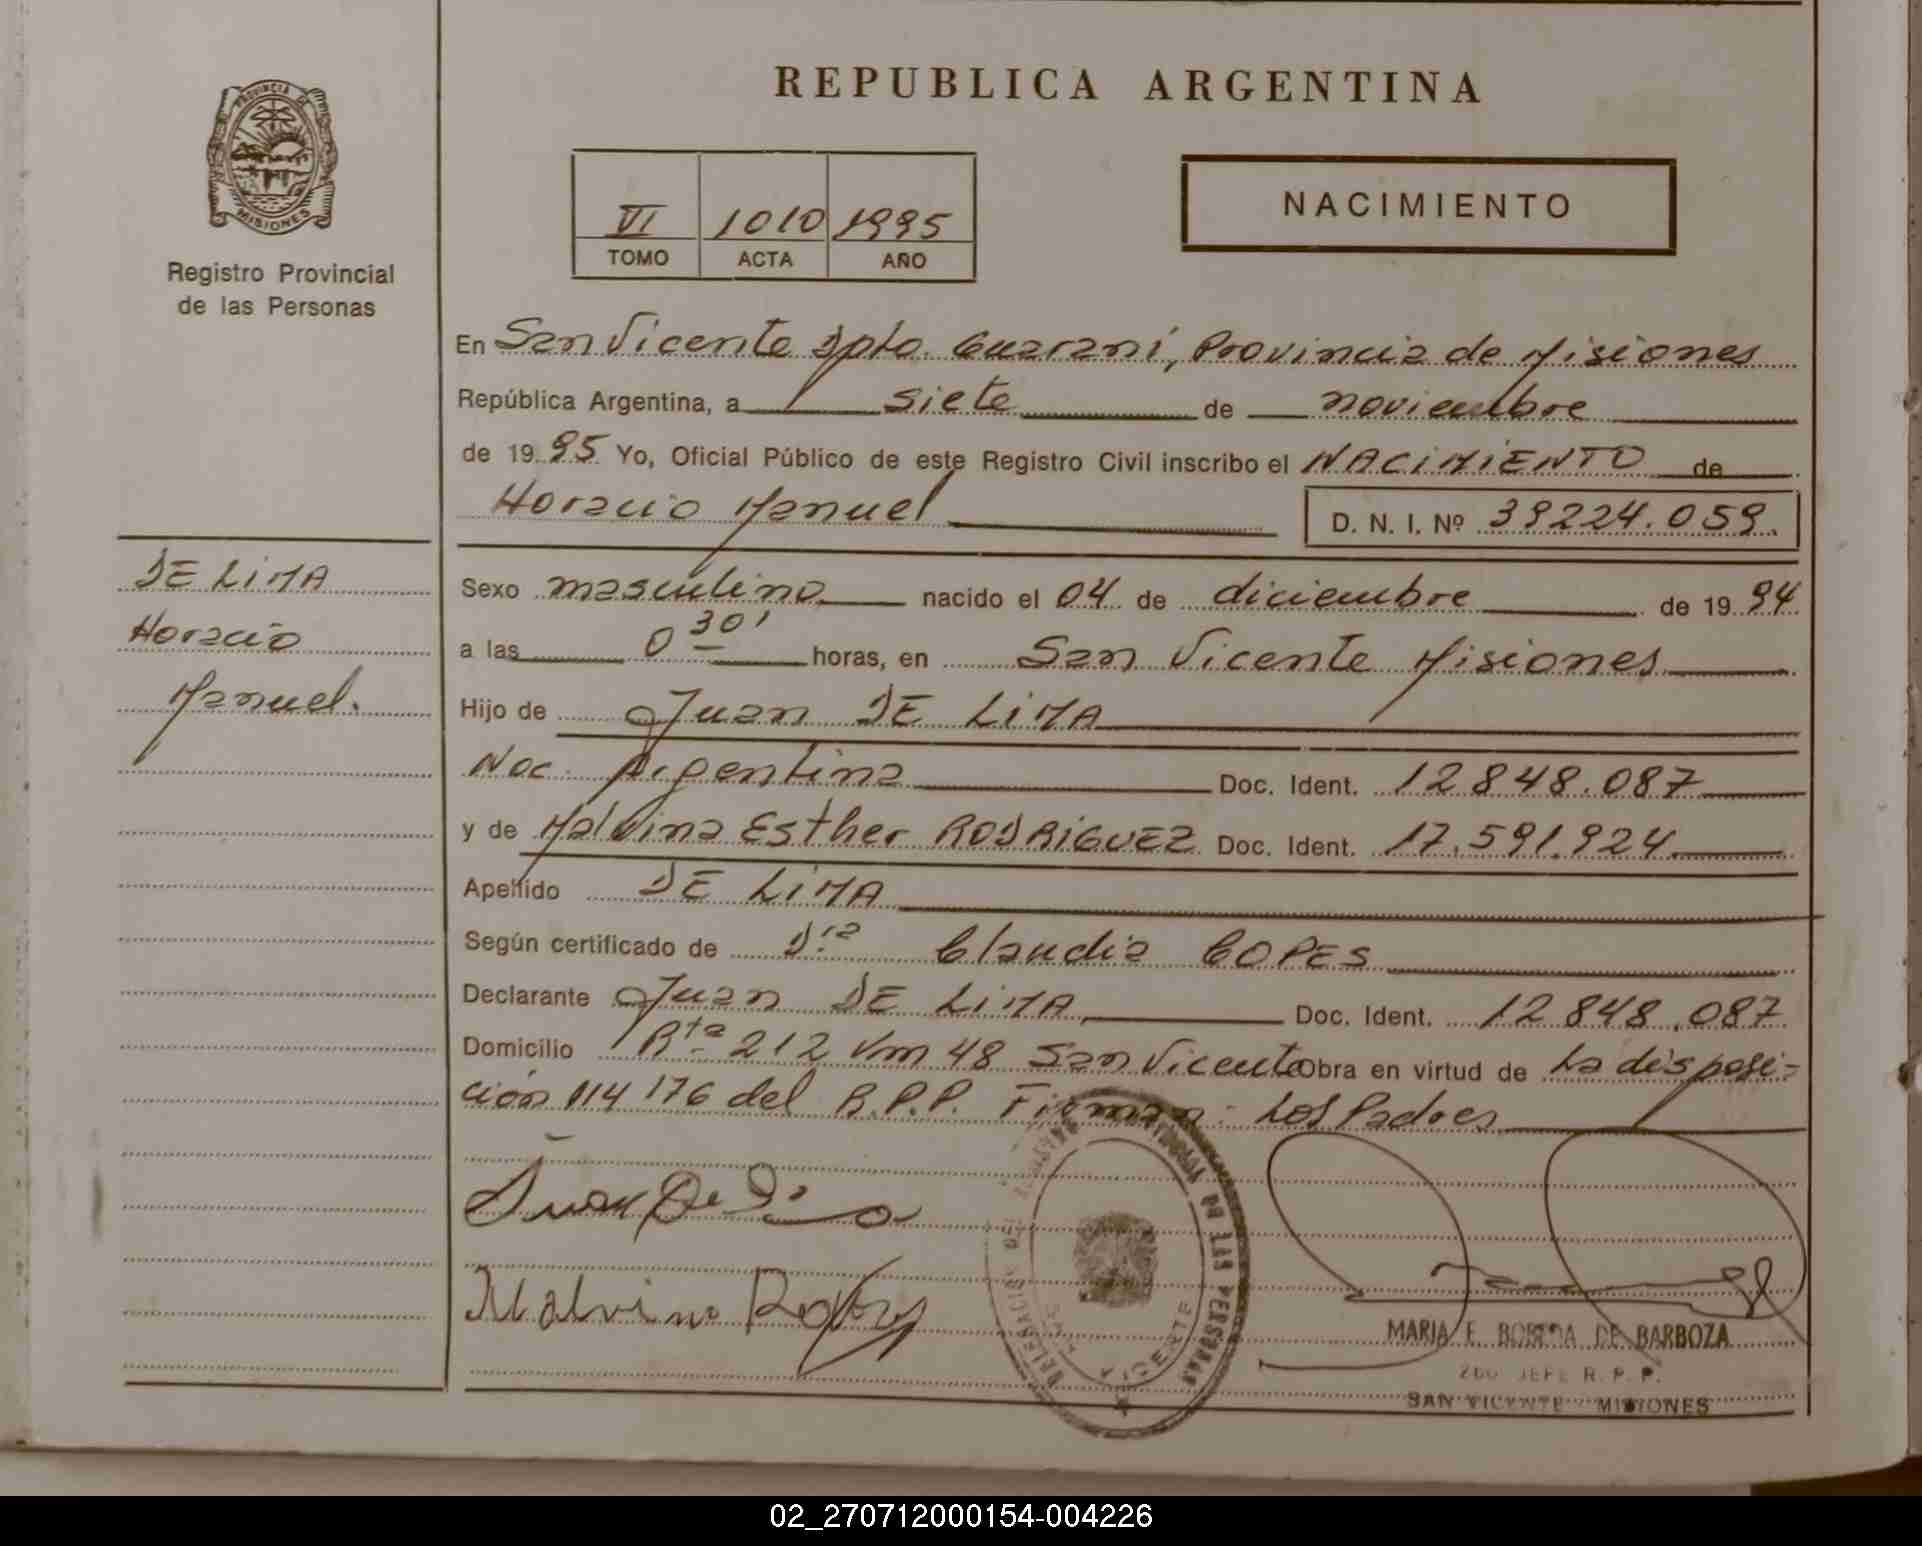 PROVINCIA DE
MISIONES
Registro Provincial
de las Personas
DE LIMA
Horacio
Manuel.
REPUBLICA ARGENTINA
VI 1010 1995
TOMO ACTA AÑO
NACIMIENTO
En San Vicente Dpto. Guaraní, Provincia de Misiones
República Argentina, a siete de noviembre
de 19 95 Yo, Oficial Público de este Registro Civil inscribo el NACIMIENTO de
Horacio Manuel D. N. I. Nº 39224.059.
Sexo masculino nacido el 04 de diciembre de 19 94
a las 0 30' horas, en San Vicente Misiones
Hijo de Juan DE LIMA
Nac. Argentina Doc. Ident. 12848.087
y de Malvina Esther RODRIGUEZ Doc. Ident. 17.591.924
Apellido DE LIMA
Según certificado de Dra Claudia COPES
Declarante Juan DE LIMA Doc. Ident. 12848.087
Domicilio Rta 212 Km 48 San Vicente Obra en virtud de La disposi-
ción 114 176 del R.P.P. Firman: Los Padres
Juan De Lima
Malvina
DELEGACION DEL REGISTRO PROVINCIAL DE LAS PERSONAS
VICENTE
MARIA E. DE BARBOZA
2DO JEFE R. P. P.
SAN VICENTE MISIONES
02_270712000154-004226